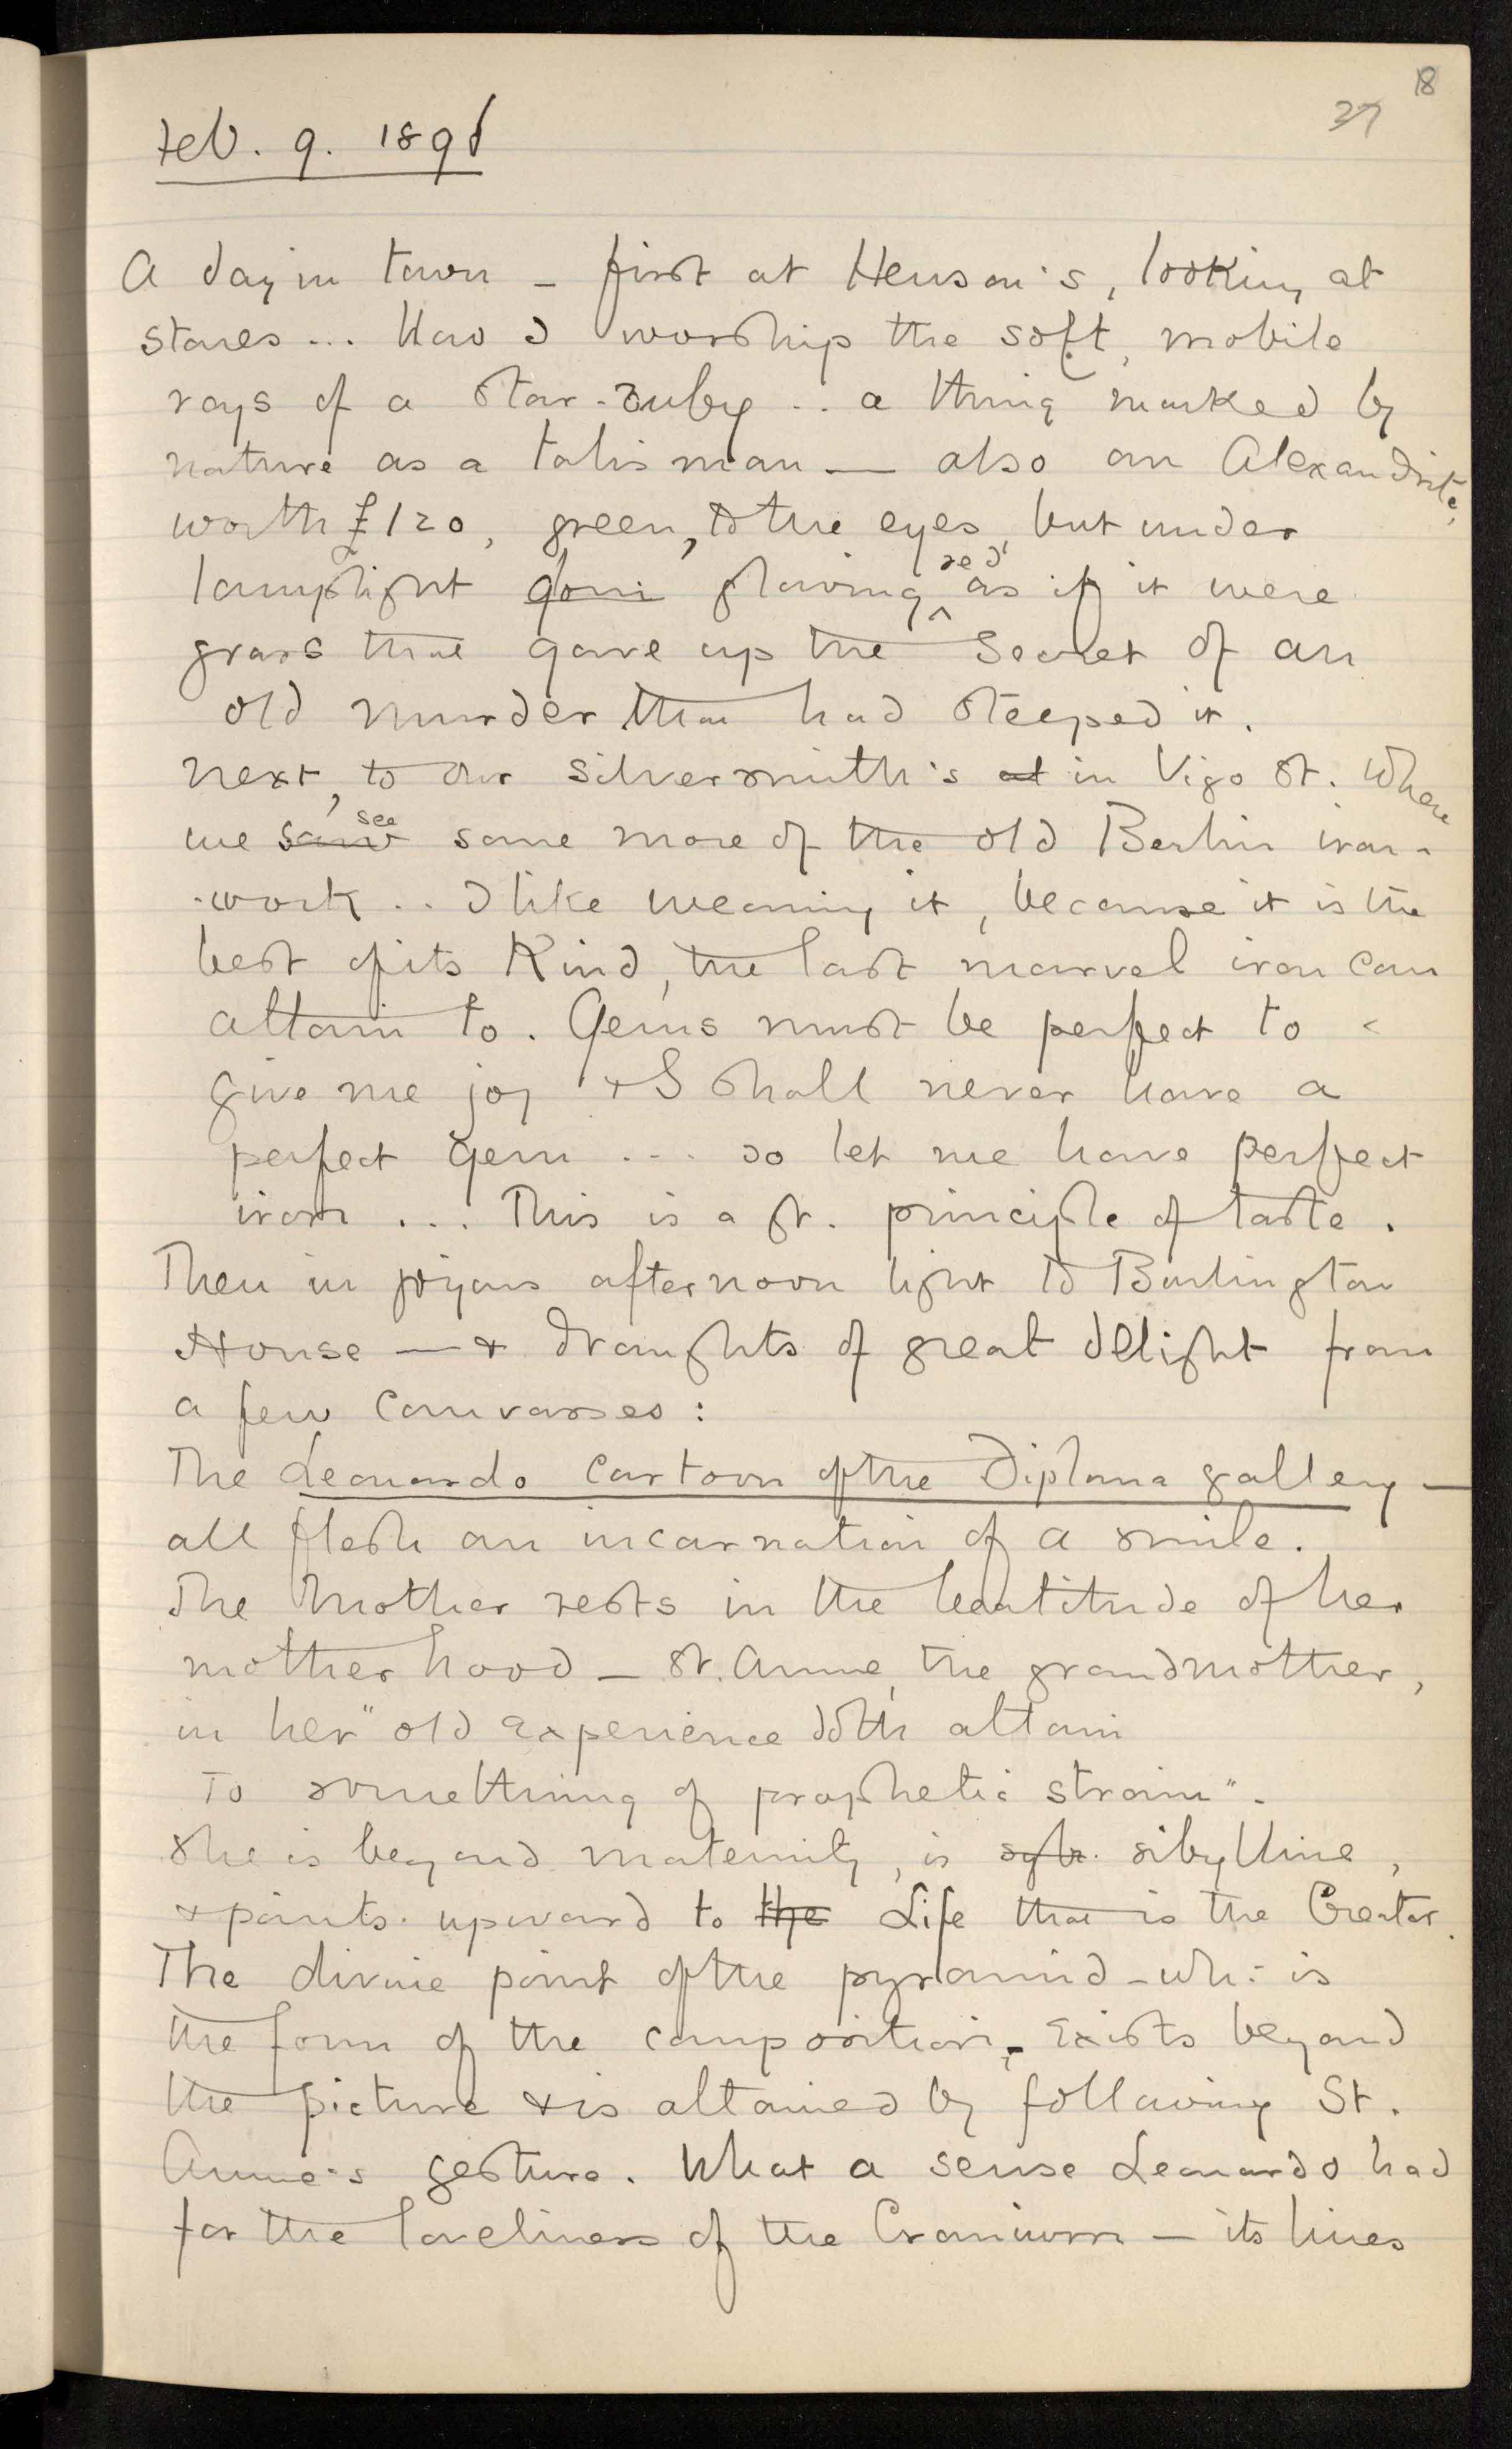 18
37
Feb. 9. 1898
A day in town – first at Henson's, looking at
stones ... How I worship the soft, mobile
rays of a star-ruby .. a thing marked by
nature as a talisman — also an Alexandrite,
worth £120, green, to the eyes, but under
lamplight glowing red as if it were
grass that gave up the secret of an
old murder that had steeped it.
Next, to our silversmith's at in Vigo St. where
we saw see some more of the old Berlin iron-
-work .. I like wearing it, because it is the
best of its kind, the last marvel iron can
attain to. Gems must be perfect to
give me joy & I shall never have a
perfect gem ... so let me have perfect
iron ... This is a gr. principle of taste.
Then in joyous afternoon light to Burlington
House — & draughts of great delight from
a few canvasses:
The Leonardo Cartoon of the Diploma gallery —
all flesh an incarnation of a smile.
The Mother rests in the beatitude of her
motherhood – St. Anne, the grandmother,
in her "old experience doth attain
To something of prophetic strain".
She is beyond maternity, is sibylline,
& points upward to the Life that is the Creator.
The divine point of the pyramid – wh: is
the form of the composition – exists beyond
the picture & is attained by following St.
Anne's gesture. What a sense Leonardo had
for the loveliness of the Cranium – its lines